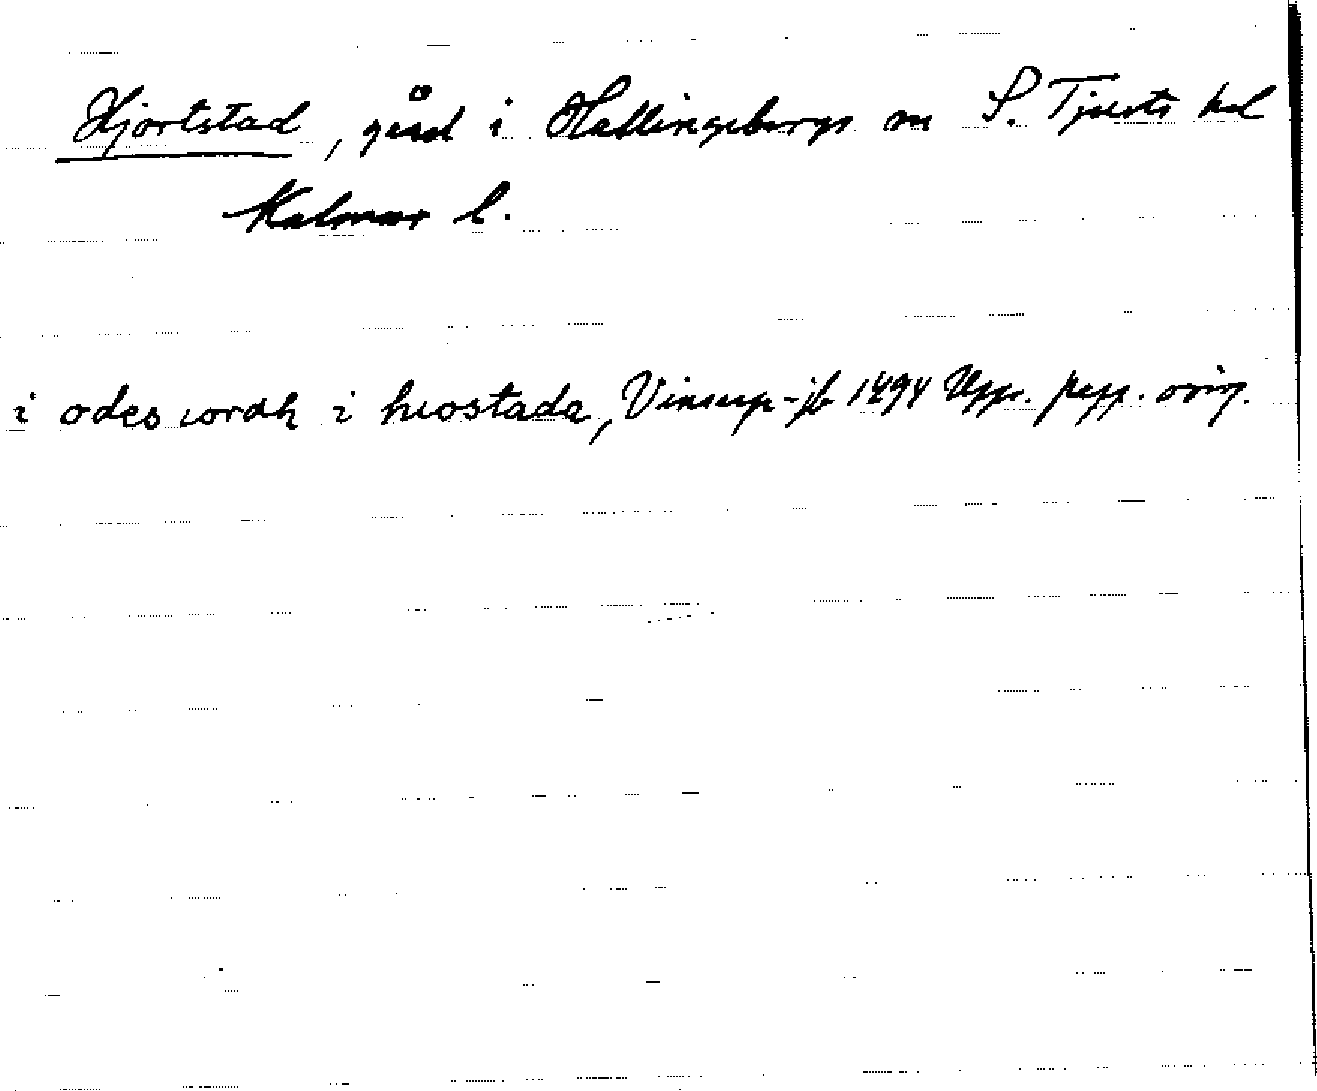 Hjortstad, gård i Hallingebergs sn S. Tjusts hd
Kalmar l.
i odes iordh i hiostada, Vinserp-jb 1494 Upps. papp. orig.